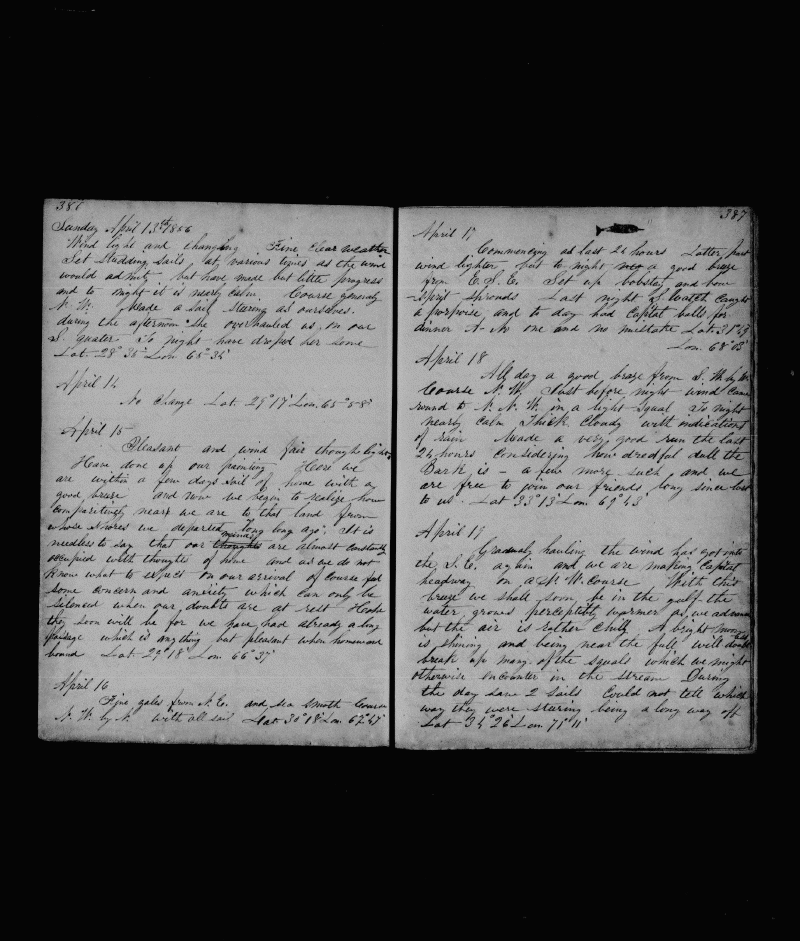 386
Sunday April 13th 1856
Wind light and changing Fine clear weather
Set Studding sails, at various times as the wind
would admit, but have made but little progress
and to night it is nearly calm. Course generly
N. W. Made a sail steering as ourselves.
during the afternoon She overhauled us, on our
S. quater To night have droped her some
Lat 28°35' Lon 65°34'
April 14
No Change Lat. 29°17' Lon. 65°58'
April 15
Pleasant and wind fair though light
Have done up our painting Here we
are within a few days sail of home with a
good breze and now we begin to realize how
comparitively near we are to that land from
whose shores we departed "long long ago". It is
needless to say that our thoughts minds are almost constantly
occupied with thoughts of home and as we do not
know what to expect on our arrival of course feel
some concern and anxiety which can only be
silenced when our doubts are at rest Hope
they soon will be for we have had already a long
passage which is anything but pleasant when homeward
bound Lat 29°18' Lon 66°37'
April 16
Fine gales from N. E. and sea smooth Course
N. W. by N. with all sail Lat 30°18' Lon. 67°47'
387
April 17
Commencing as last 24 hours Latter part
wind lighter, but to night a good breze
from E. S. E. Set up bobstay and bow
sprit shrouds Last night S. Watch Caught
a purpoise, and to day had Capital balls for
dinner A- No one and no mistake Lat 31°49'
Lon. 68°03'
April 18
All day a good breze from S. W. by W.
Course N. W. Just before night wind came
round to N. N. W. in a light squal To night
nearly calm Thick Cloudy with indications
of rain Made a very good run the last
24 hours Considering how dredful dull the
Bark is - a few more such, and we
are free to join our friends, long since lost
to us. Lat 33°13' Lon 69°43'
April 19
Gradualy hauling the wind has got into
the S. E. again and we are making Capital
headway on a N. W. Course With this
breze we shall soon be in the gulf the
water grows perceptibly warmer as we advance
but the air is rather chilly A bright moon
is shining and being near the full will doubtless
break up many of the squals which we might
otherwise encounter in the stream During
the day saw 2 sails Could not tell which
way they were staring being a long way off
Lat 34°26' Lon 71°11'